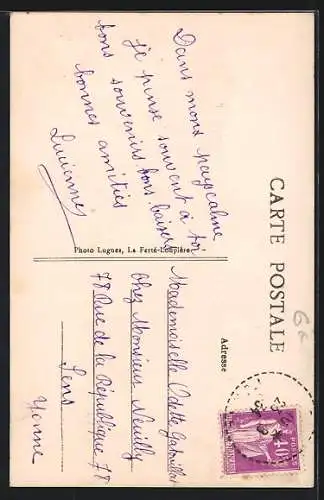 CARTE POSTALE
Dans mons pays calme
je pense souvent à toi
bons souvenirs bons baisers
bonnes amitiés
Lucienne
Photo Lugnes, La Ferté-Loupière
Adresse
Mademoiselle Odette
Chez Monsieur Neuilly
78 Rue de la République 78
Sens
Yonne
POSTES
40c